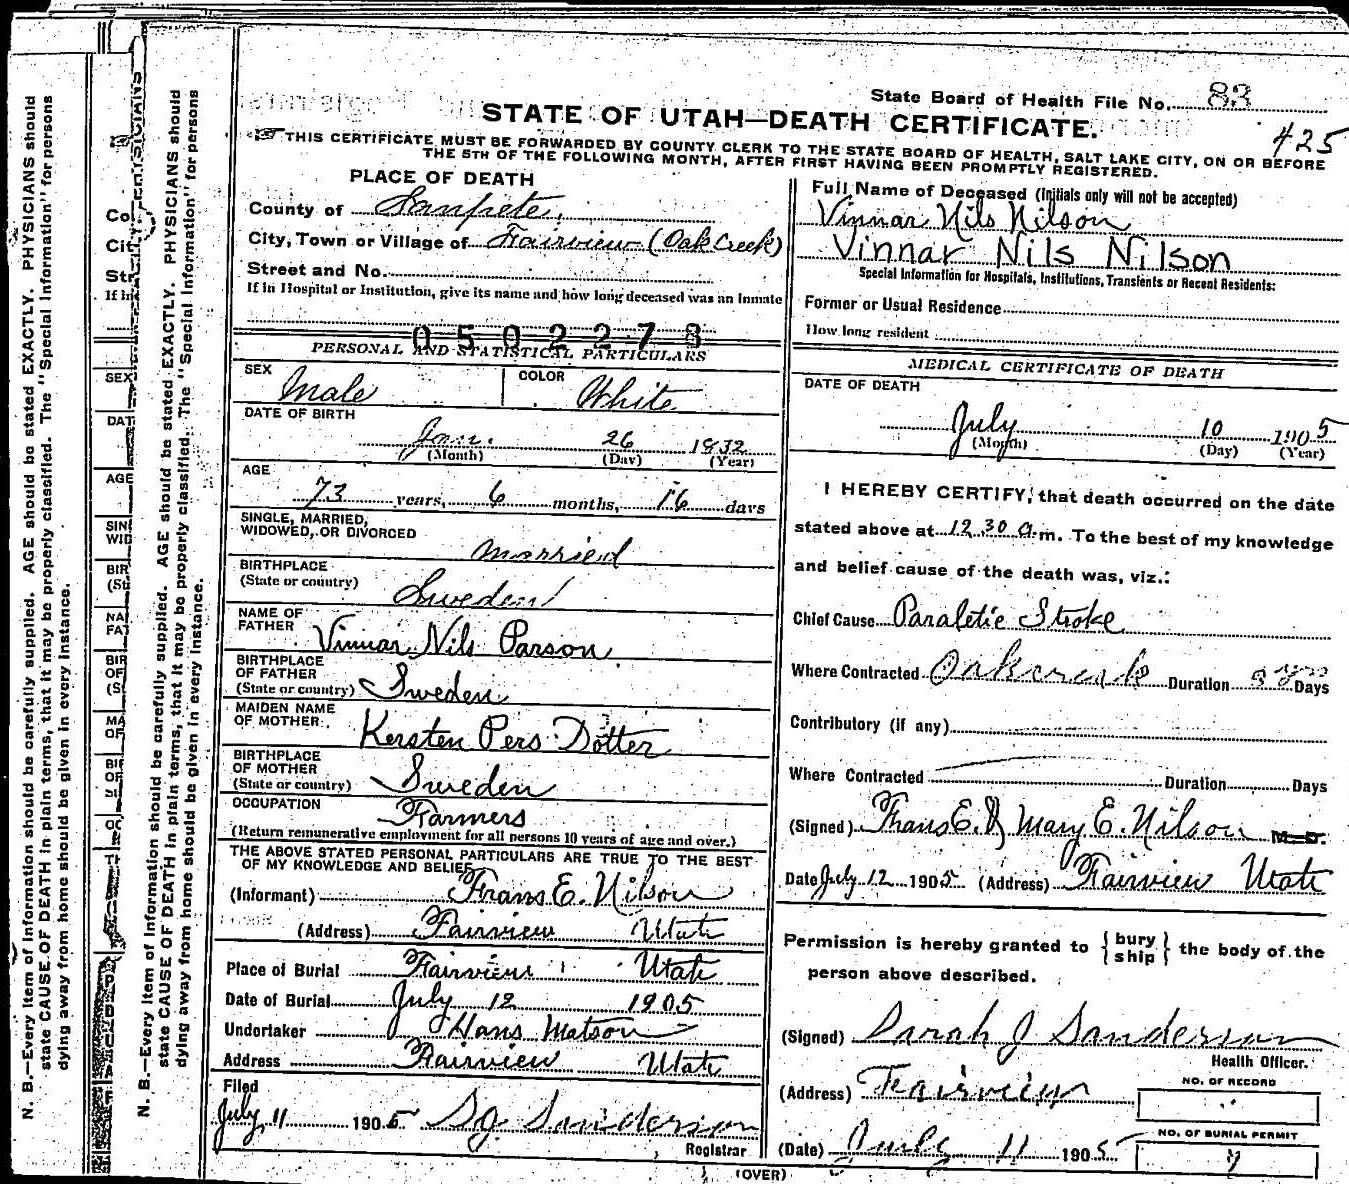 State Board of Health File No. 83
STATE OF UTAH—DEATH CERTIFICATE.
425
THIS CERTIFICATE MUST BE FORWARDED BY COUNTY CLERK TO THE STATE BOARD OF HEALTH, SALT LAKE CITY, ON OR BEFORE
THE 5TH OF THE FOLLOWING MONTH, AFTER FIRST HAVING BEEN PROMPTLY REGISTERED.
PLACE OF DEATH
County of Sanpete,
City, Town or Village of Fairview (Oak Creek)
Street and No.
If in Hospital or Institution, give its name and how long deceased was an Inmate
0502278
PERSONAL AND STATISTICAL PARTICULARS
SEX Male COLOR White
DATE OF BIRTH
Jan. 26 1832
(Month) (Day) (Year)
AGE
73 years, 6 months, 16 days
SINGLE, MARRIED,
WIDOWED, OR DIVORCED married
BIRTHPLACE
(State or country) Sweden
NAME OF
FATHER Vinnar Nils Parson
BIRTHPLACE
OF FATHER
(State or country) Sweden
MAIDEN NAME
OF MOTHER Kersten Pers Dotter
BIRTHPLACE
OF MOTHER
(State or country) Sweden
OCCUPATION Farmers
(Return remunerative employment for all persons 10 years of age and over.)
THE ABOVE STATED PERSONAL PARTICULARS ARE TRUE TO THE BEST
OF MY KNOWLEDGE AND BELIEF
(Informant) Frans E. Nilson
(Address) Fairview Utah
Place of Burial Fairview Utah
Date of Burial July 12 1905
Undertaker Hans Matson
Address Fairview Utah
Filed
July 11 1905 Sanderson
Registrar
(OVER)
Full Name of Deceased (Initials only will not be accepted)
Vinnar Nils Nilson
Vinnar Nils Nilson
Special Information for Hospitals, Institutions, Transients or Recent Residents:
Former or Usual Residence
How long resident
MEDICAL CERTIFICATE OF DEATH
DATE OF DEATH
July 10 1905
(Month) (Day) (Year)
I HEREBY CERTIFY, that death occurred on the date
stated above at 12 30 a.m. To the best of my knowledge
and belief cause of the death was, viz.:
Chief Cause Paraletic Stroke
Where Contracted Oakcreek Duration yrs Days
Contributory (if any)
Where Contracted Duration Days
(Signed) Frans E. & Mary E. Nilson M.D.
Date July 12 1905 (Address) Fairview Utah
Permission is hereby granted to {bury ship} the body of the
person above described.
(Signed) Sarah J Sanderson
Health Officer.
(Address) Fairview
NO. OF RECORD
(Date) July 11 1905
NO. OF BURIAL PERMIT
7
N. B.—Every item of information should be carefully supplied. AGE should be stated EXACTLY. PHYSICIANS should
state CAUSE OF DEATH in plain terms, that it may be properly classified. The "Special Information" for persons
dying away from home should be given in every instance.
N. B.—Every item of information should be carefully supplied. AGE should be stated EXACTLY. PHYSICIANS should
state CAUSE OF DEATH in plain terms, that it may be properly classified. The "Special Information" for persons
dying away from home should be given in every instance.